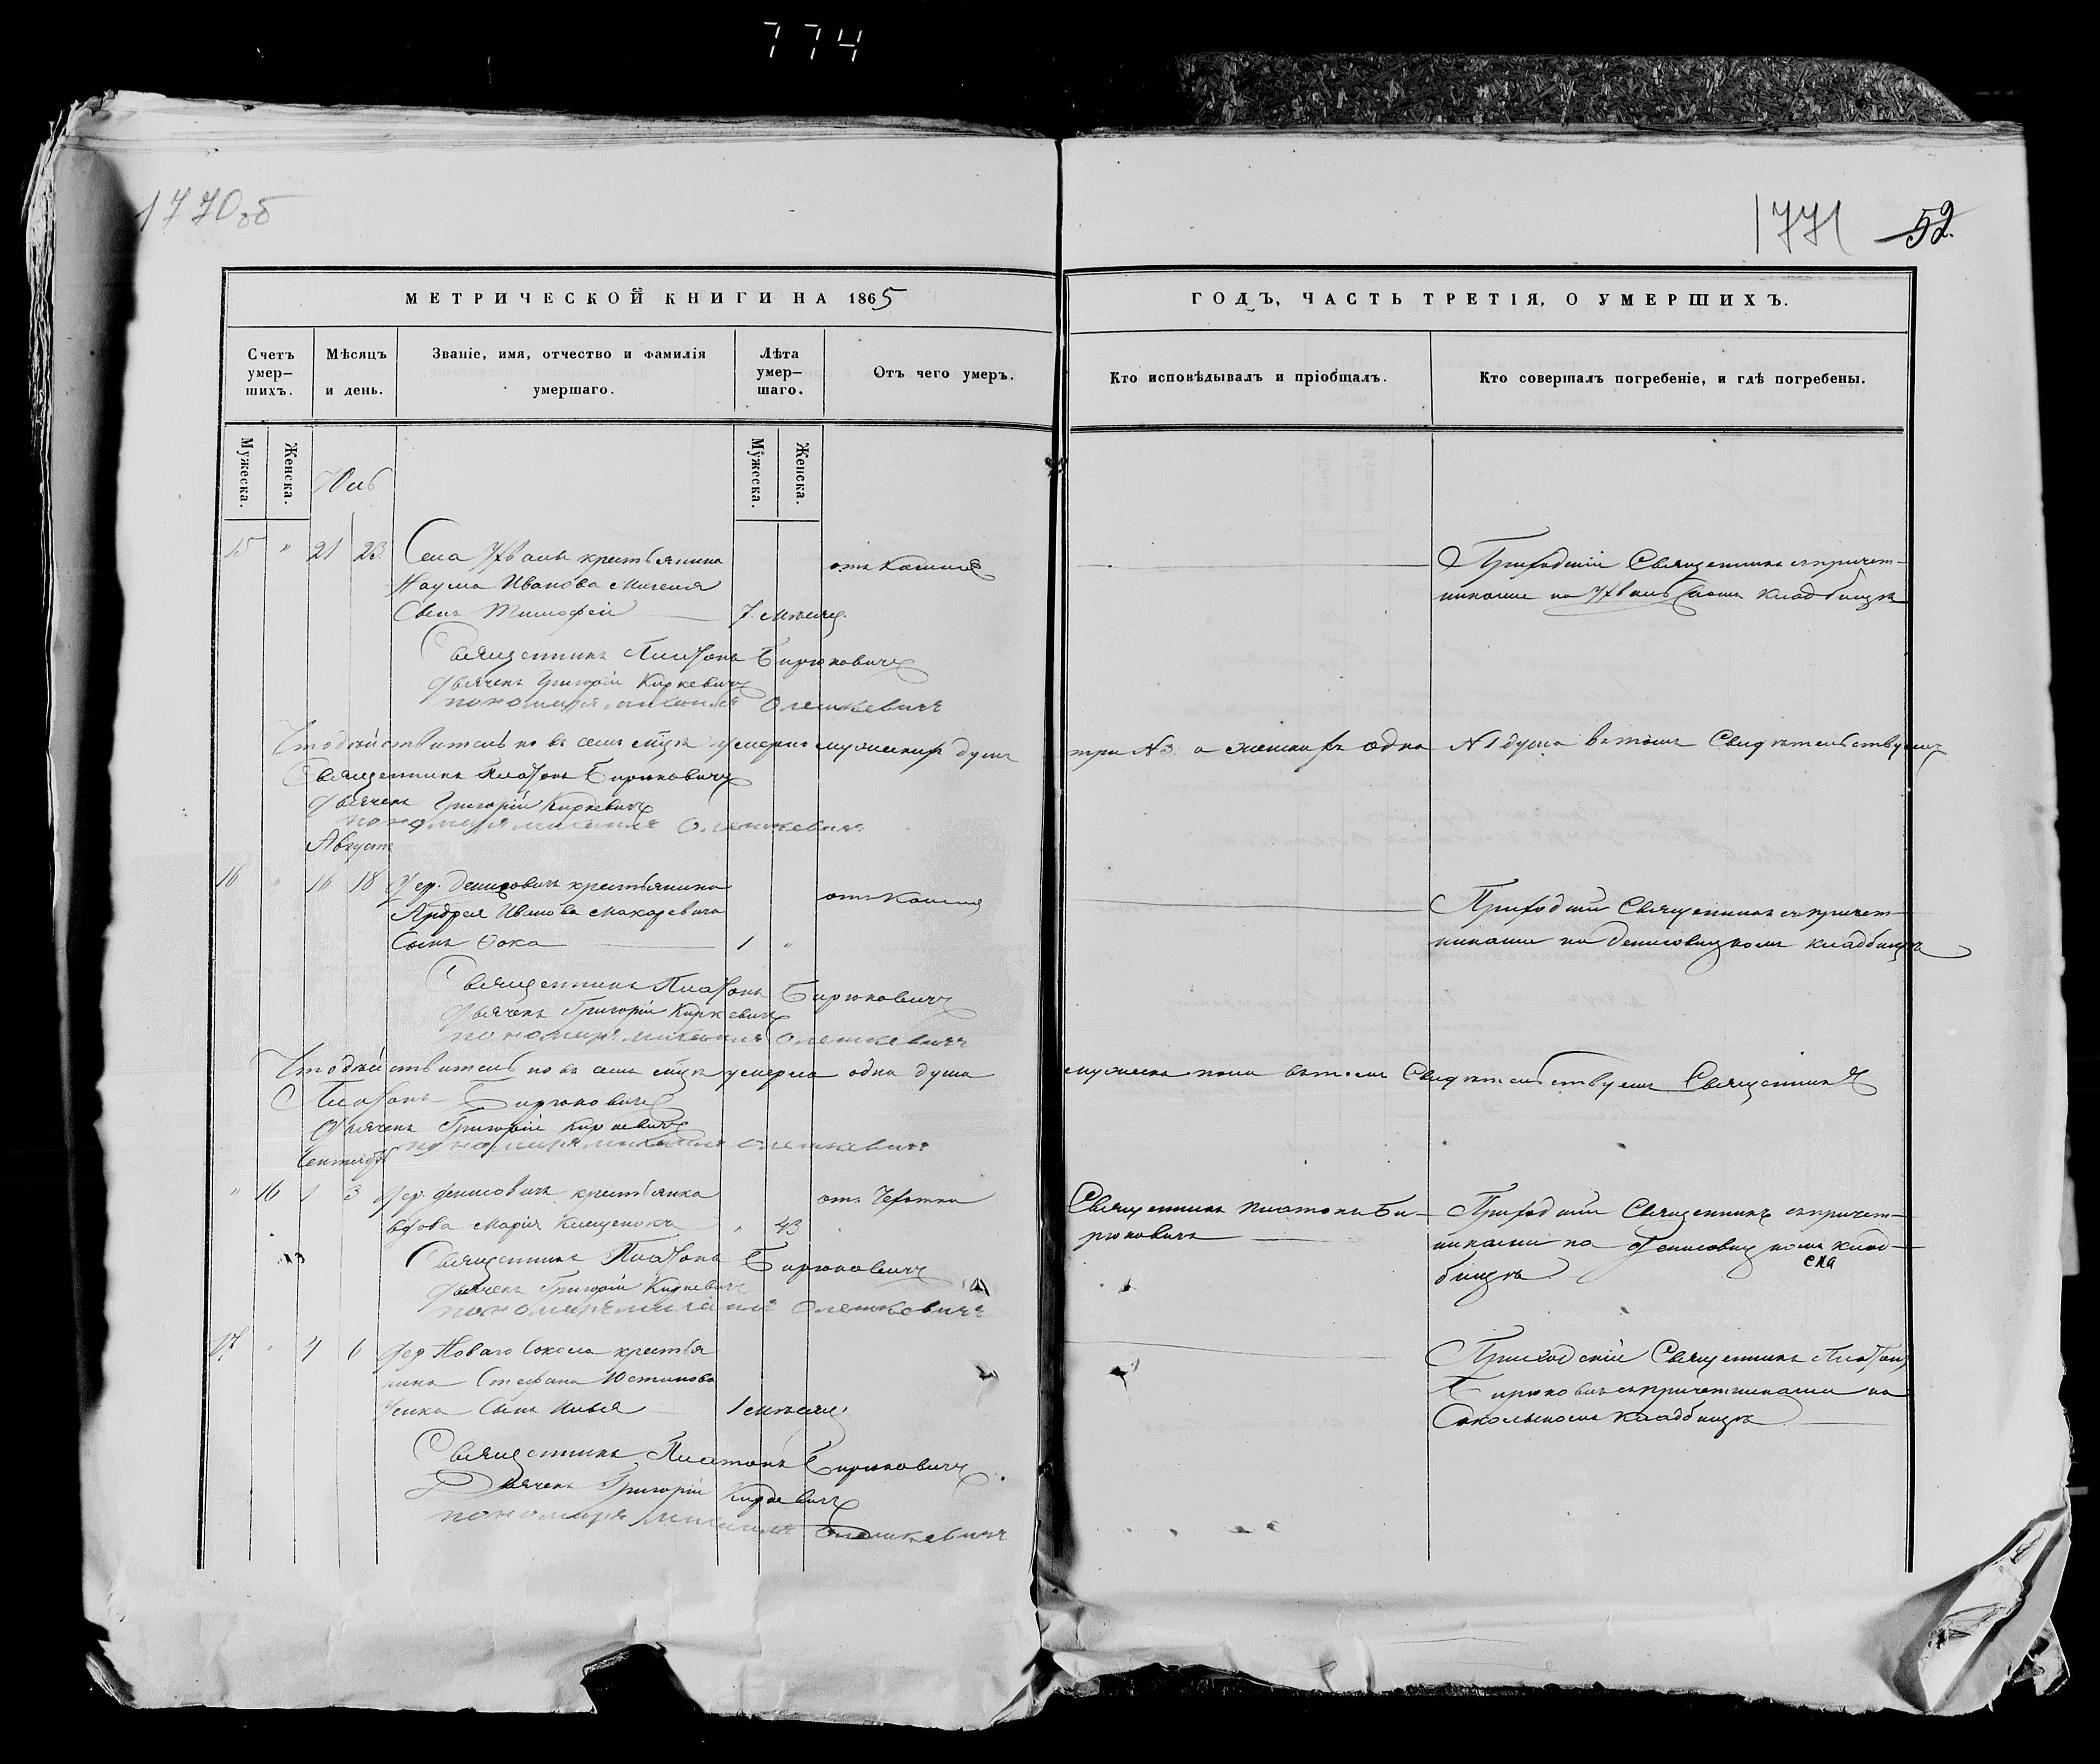 774
1770об
1771 52.
МЕТРИЧЕСКОЙ КНИГИ НА 1865
ГОДЪ, ЧАСТЬ ТРЕТІЯ, О УМЕРШИХЪ.
Счетъ умер-
шихъ.
Мѣсяцъ
и день.
Званіе, имя, отчество и фамилія
умершаго.
Лѣта
умер-
шаго.
Отъ чего умеръ.
Кто исповѣдывалъ и пріобщалъ.
Кто совершалъ погребеніе, и гдѣ погребены.
Мужеска.
Женска.
Мужеска.
Женска.
Юль
15 " 21 23 Села крестьянина
отъ Кашля
Наума Иванова
Сынъ Тимофей 7. мѣсяц.
Приходскій Священникъ съ причет-
никами на кладбищѣ
Священникъ Платонъ Бирюковичъ
Дьячекъ Григорій Киркевичъ
пономарь Михаилъ Олешкевичъ
Что дѣйствительно въ семъ м͠цѣ умерло мужеска душъ три №3. а женска одна №1 душа въ томъ Свидѣтельствуемъ
Священникъ Платонъ Бирюковичъ
Дьячекъ Григорій Киркевичъ
пономарь Михаилъ Олешкевичъ
Августъ
16 " 16 18 Дер. Денисовичъ крестьянина
отъ Кашля
Андрея Иванова Макаревича
Сынъ Ѳока 1 "
Приходскій Священникъ съ причет-
никами на Денисовицкомъ кладбищѣ
Священникъ Платонъ Бирюковичъ
Дьячекъ Григорій Киркевичъ
пономарь Михаилъ Олешкевичъ
Что дѣйствительно въ семъ м͠цѣ умерла одна душа мужеска пола въ томъ Свидѣтельствуемъ Священникъ
Платонъ Бирюковичъ
Дьячекъ Григорій Киркевичъ
пономарь Михаилъ Олешкевичъ
Сентябрь
" 16 1 3 Дер. Денисовичъ крестьянка
отъ Чахотки
вдова Марія Клещенокъ " 43
Священникъ Платонъ Би-
рюковичъ
Приходскій Священникъ съ причет-
никами на Денисовицкомъ клад-
бищѣ
Священникъ Платонъ Бирюковичъ
Дьячекъ Григорій Киркевичъ
пономарь Михаилъ Олешкевичъ
17 " 4 6 Дер Новаго Сокола крестья
нина Стефана Юстинова
Сынъ Илья 1 мѣсяц.
Приходскій Священникъ Платонъ
Бирюковичъ съ причетниками на
Сокольскомъ кладбищѣ
Священникъ Платонъ Бирюковичъ
Дьячекъ Григорій Киркевичъ
пономарь Михаилъ Олешкевичъ